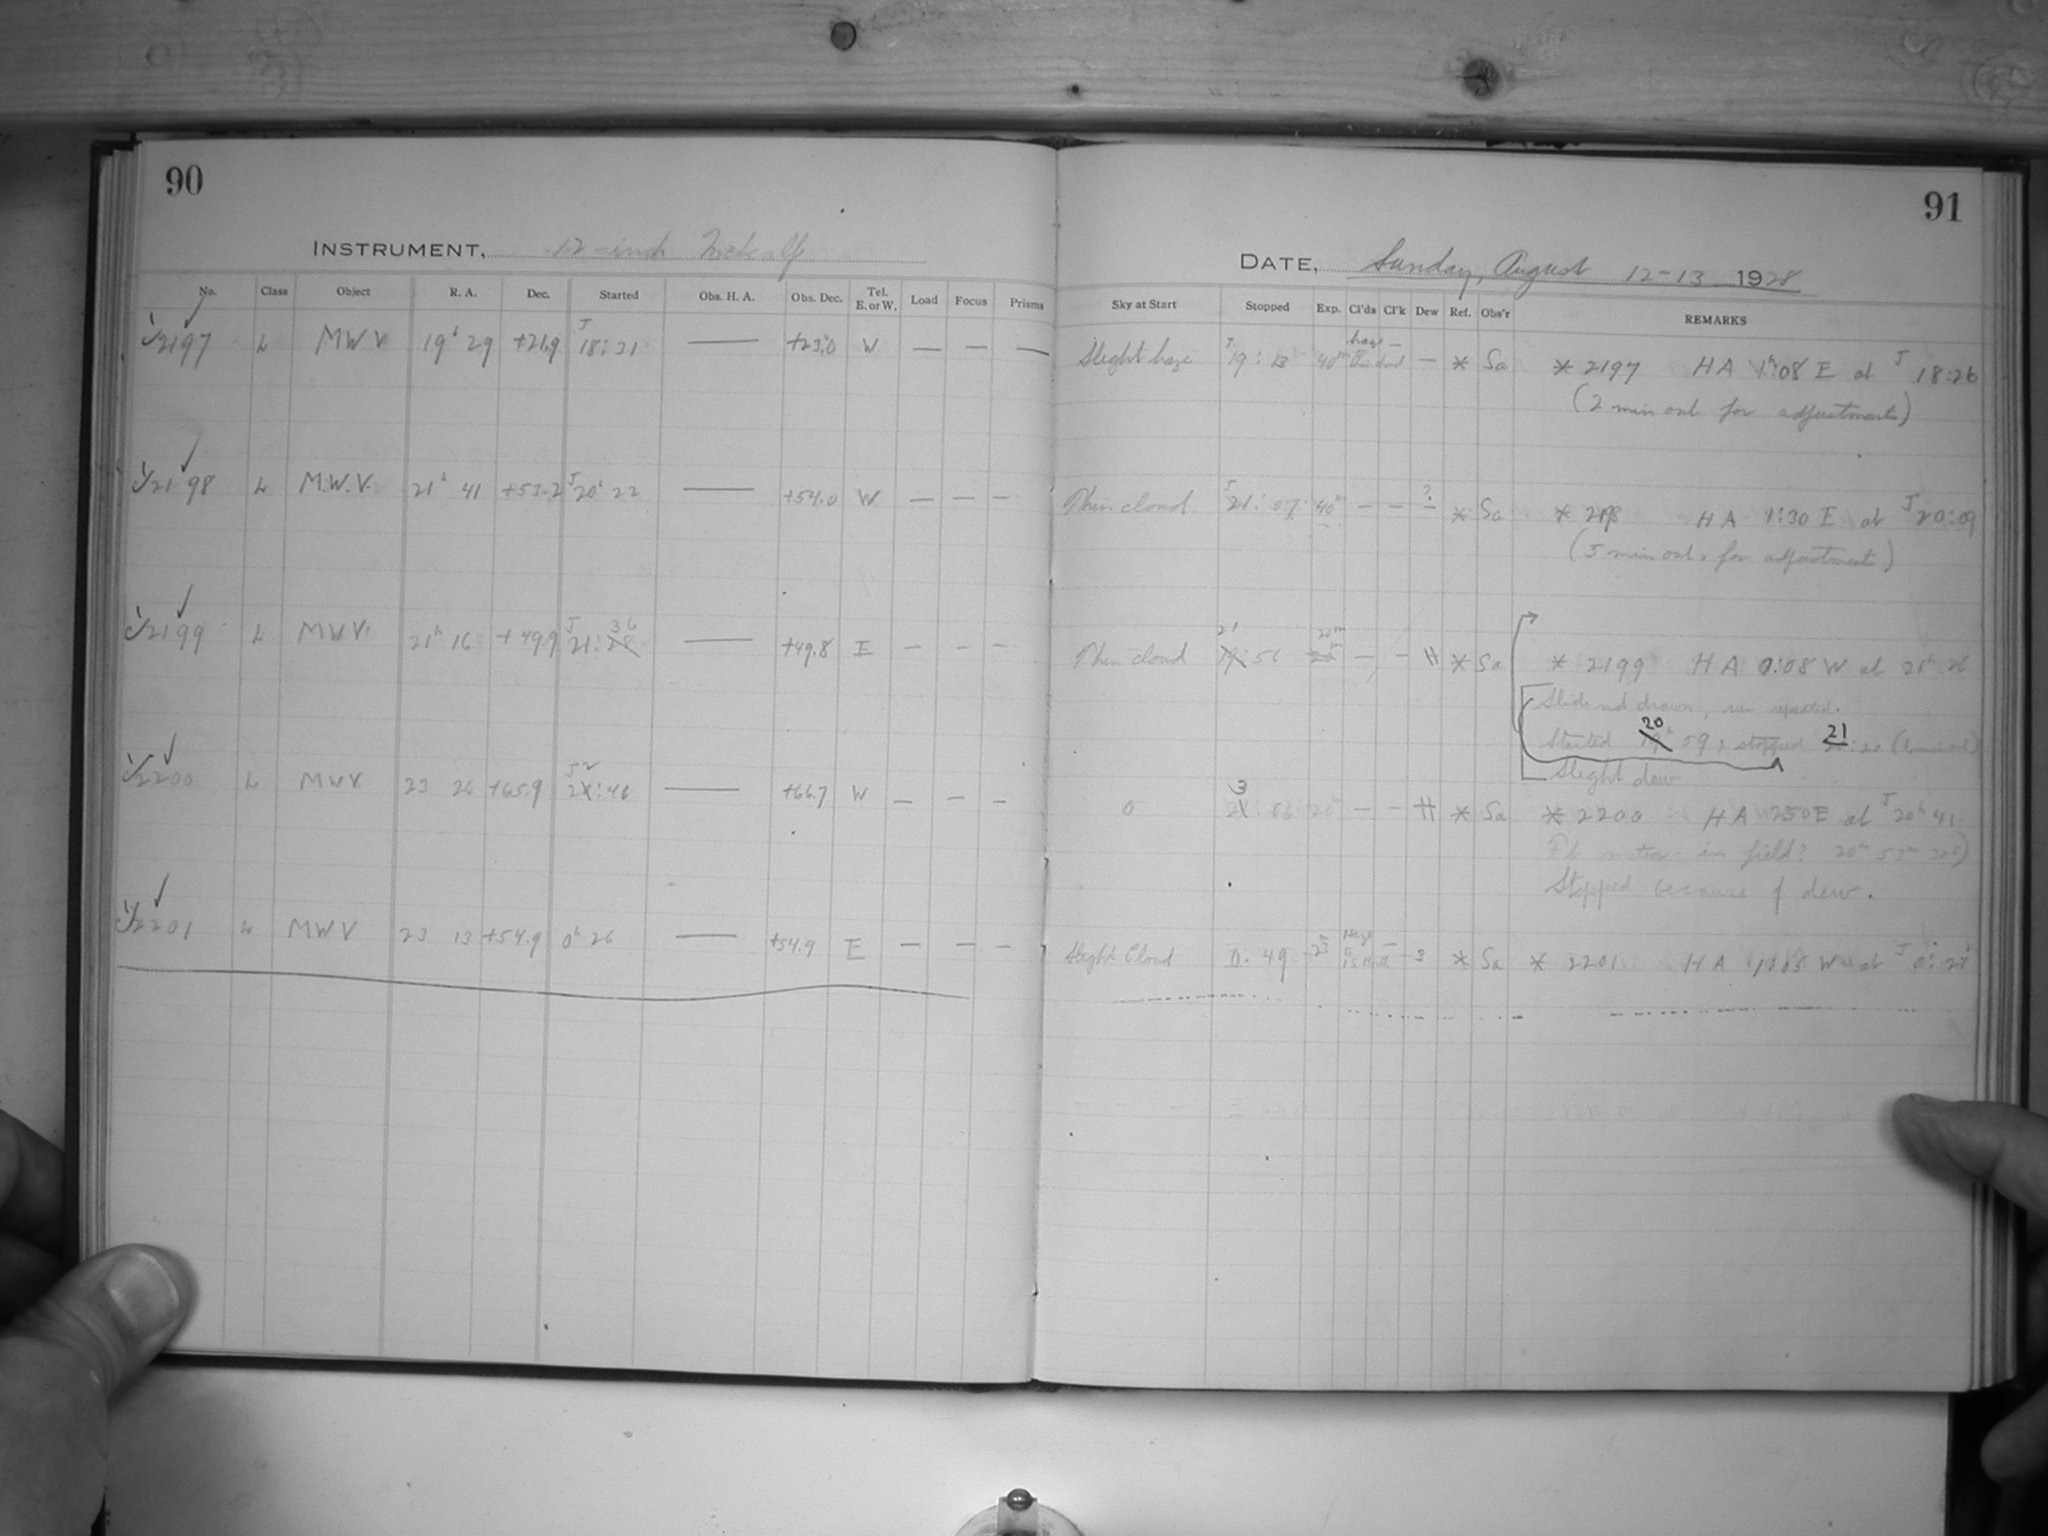 90
INSTRUMENT, 12-inch Metcalf
No. Class Object R. A. Dec. Started Obs. H. A. Obs. Dec. Tel. E. or W. Load Focus Prisms
2197 L MWV 19h 29 +21.9 J 18:31 — +23.0 W — — —
2198 L M.W.V. 21h 41 +53.2 J 20h 22 — +54.0 W — — —
2199 L MWV. 21h 16 +49.9 J 21:36 — +49.8 E — — —
2200 L MWV 23 26 +65.9 J :46 — +66.7 W — — —
2201 L MWV 23 13 +54.9 0h 26 — +54.9 E — — —
91
DATE, Sunday, August 12-13 1928
Sky at Start Stopped Exp. Cl'ds Cl'k Dew Ref. Obs'r REMARKS
Slight haze J 19: 40m haze — — * Sa * 2197 HA 1h08 E at J 18:26
(2 min out for adjustments)
Thin cloud. J 21:07 40m — — ? — * Sa * 2198 HA 1:30 E at J 20:09
(5 min out. for adjustment)
Thin cloud 21 :56 20m — — H * Sa * 2199 HA 0:08 W at 21h 26
Slide not drawn, run repeated.
Started 20 59, stopped 21:20
Slight dew
0 3 :06 20m — — H * Sa * 2200 HA 250E at J 20h 41
in field? 20h 53m 30s)
Stopped because of dew.
Slight Cloud 0:49 23m Haze — 3 * Sa * 2201 HA 1:03 W at J 0:21